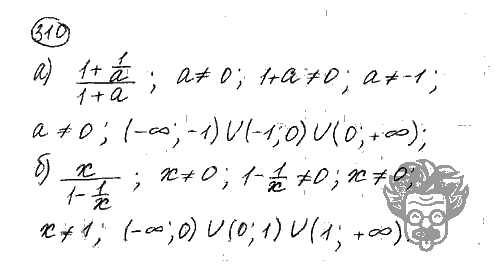 310
а) (1 + 1/a)/(1 + a) ; a ≠ 0 ; 1 + a ≠ 0 ; a ≠ -1 ;
a ≠ 0 ; (-∞ ; -1) ∪ (-1 ; 0) ∪ (0 ; +∞) ;
б) x/(1 - 1/x) ; x ≠ 0 ; 1 - 1/x ≠ 0 ; x ≠ 0 ;
x ≠ 1 ; (-∞ ; 0) ∪ (0 ; 1) ∪ (1 ; +∞).